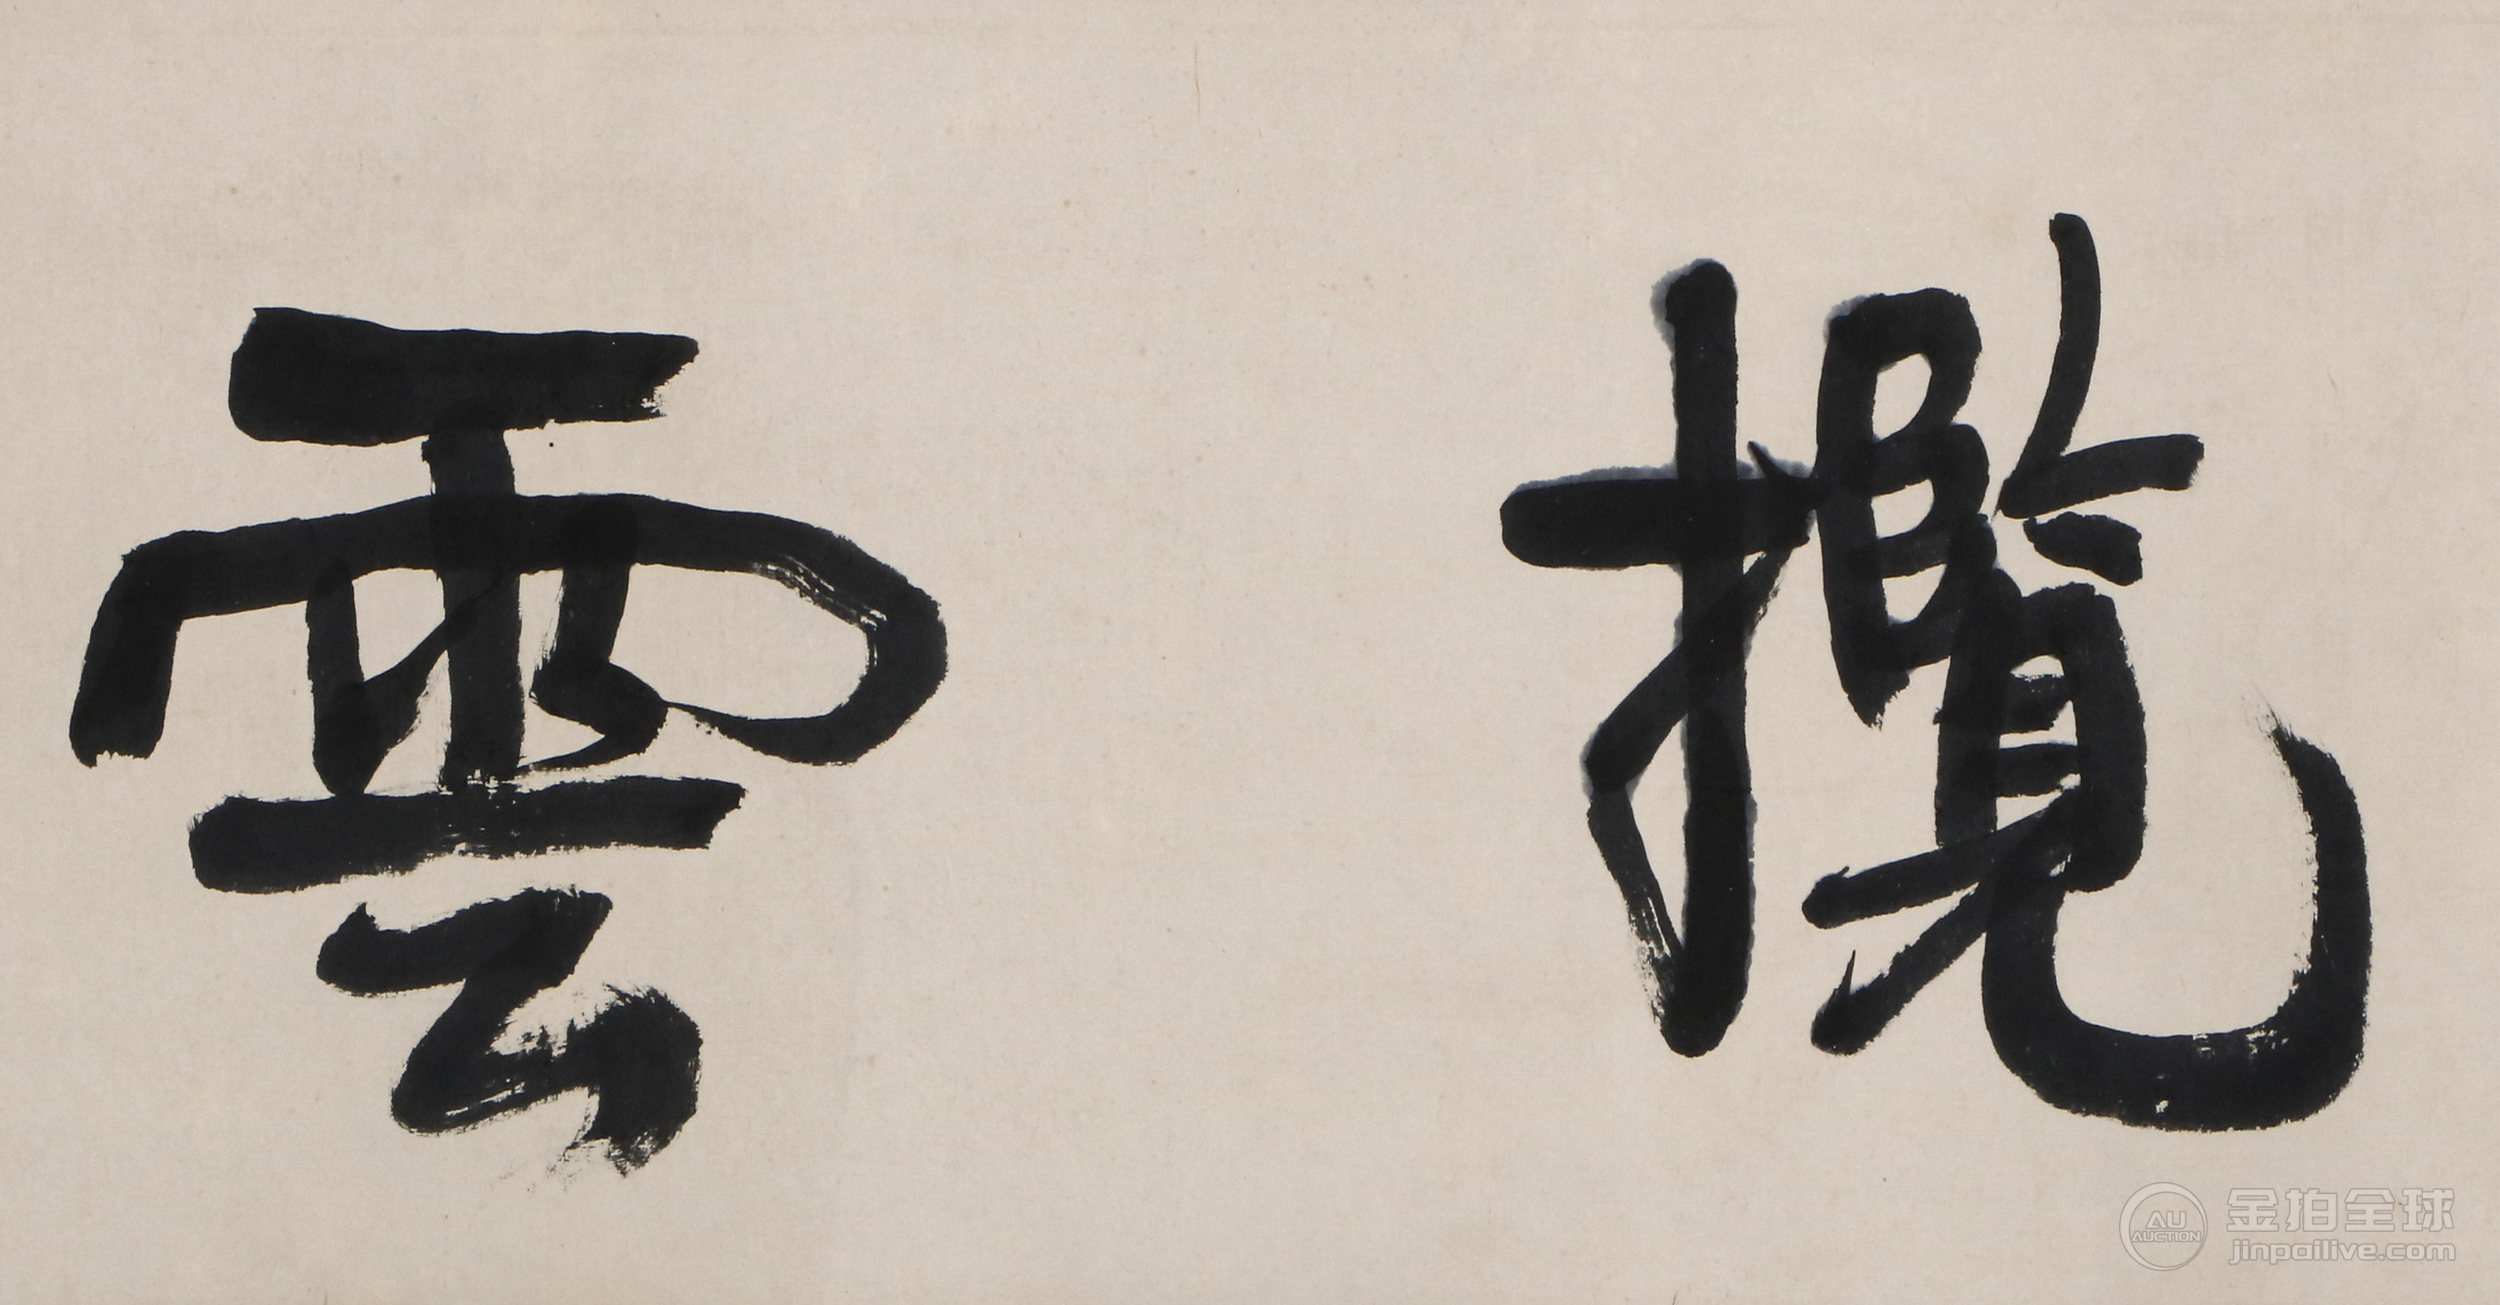 攬雲
AU
AUCTION
金拍全球
jinpailive.com